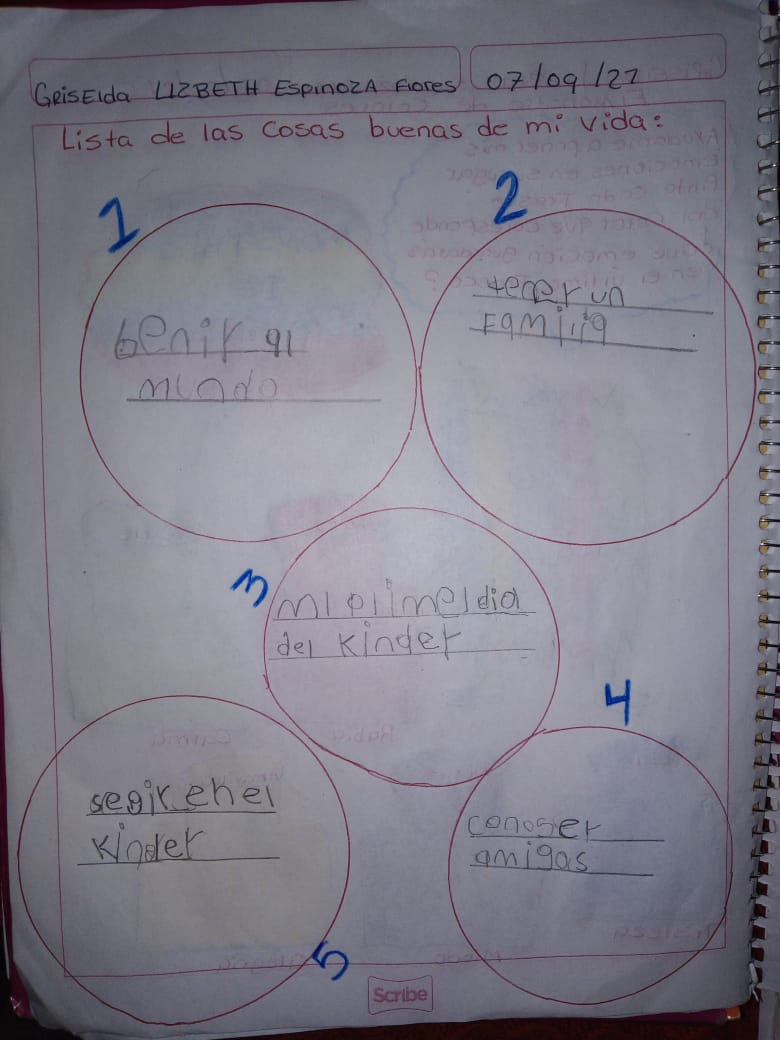 GRISElda LIZBETH EspinozA Flores
07/09/21
Lista de las cosas buenas de mi vida:
1
benir al
mundo
2
tener un
Familia
3
mi plimel dia
del Kinder
4
conoser
amigas
segir en el
Kinder
5
Scribe